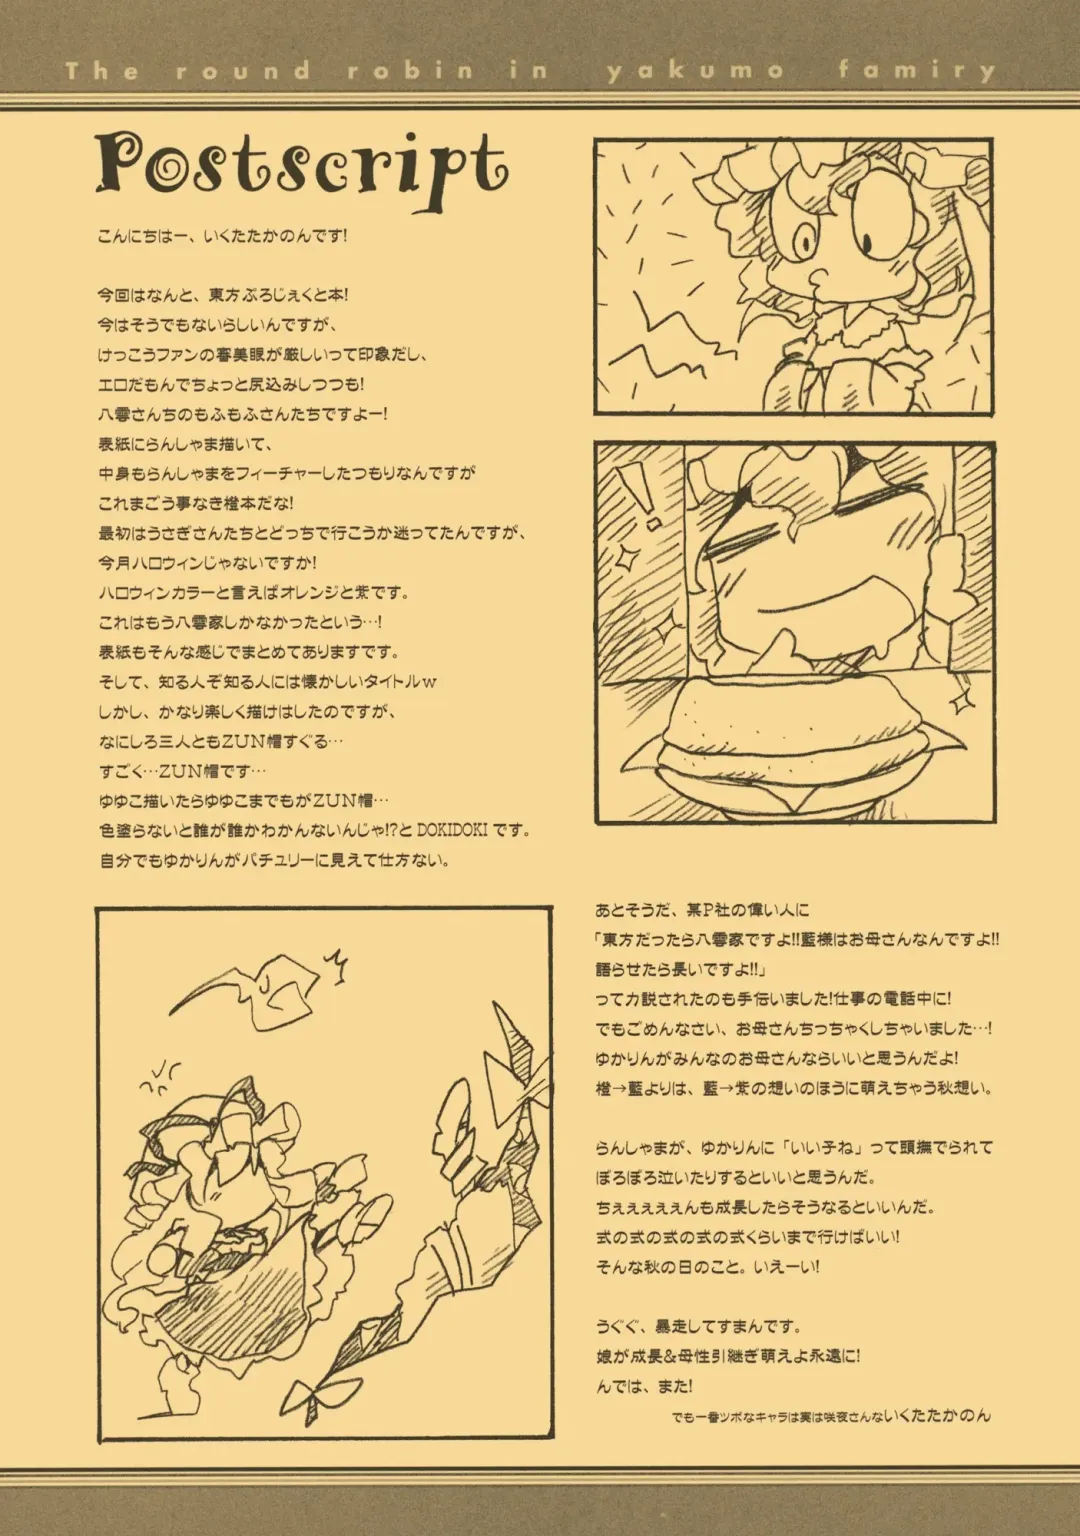 The round robin in yakumo famiry
Postscript
こんにちはー、いくたたかのんです!
今回はなんと、東方ぷろじぇくと本!
今はそうでもないらしいんですが、
けっこうファンの審美眼が厳しいって印象だし、
エロだもんでちょっと尻込みしつつも!
八雲さんちのもふもふさんたちですよー!
表紙にらんしゃま描いて、
中身もらんしゃまをフィーチャーしたつもりなんですが
これまごう事なき橙本だな!
最初はうさぎさんたちとどっちで行こうか迷ってたんですが、
今月ハロウィンじゃないですか!
ハロウィンカラーと言えばオレンジと紫です。
これはもう八雲家しかなかったという…!
表紙もそんな感じでまとめてありますです。
そして、知る人ぞ知る人には懐かしいタイトルw
しかし、かなり楽しく描けはしたのですが、
なにしろ三人ともZUN帽すぐる…
すごく…ZUN帽です…
ゆゆこ描いたらゆゆこまでもがZUN帽…
色塗らないと誰が誰かわかんないんじゃ!?とDOKIDOKIです。
自分でもゆかりんがパチュリーに見えて仕方ない。
あとそうだ、某P社の偉い人に
「東方だったら八雲家ですよ!!藍様はお母さんなんですよ!!
語らせたら長いですよ!!」
って力説されたのも手伝いました!仕事の電話中に!
でもごめんなさい、お母さんちっちゃくしちゃいました…!
ゆかりんがみんなのお母さんならいいと思うんだよ!
橙→藍よりは、藍→紫の想いのほうに萌えちゃう秋想い。
らんしゃまが、ゆかりんに「いい子ね」って頭撫でられて
ぼろぼろ泣いたりするといいと思うんだ。
ちぇぇぇぇぇんも成長したらそうなるといいんだ。
式の式の式の式の式くらいまで行けばいい!
そんな秋の日のこと。いえーい!
うぐぐ、暴走してすまんです。
娘が成長&母性引継ぎ萌えよ永遠に!
んでは、また!
でも一番ツボなキャラは実は咲夜さんないくたたかのん